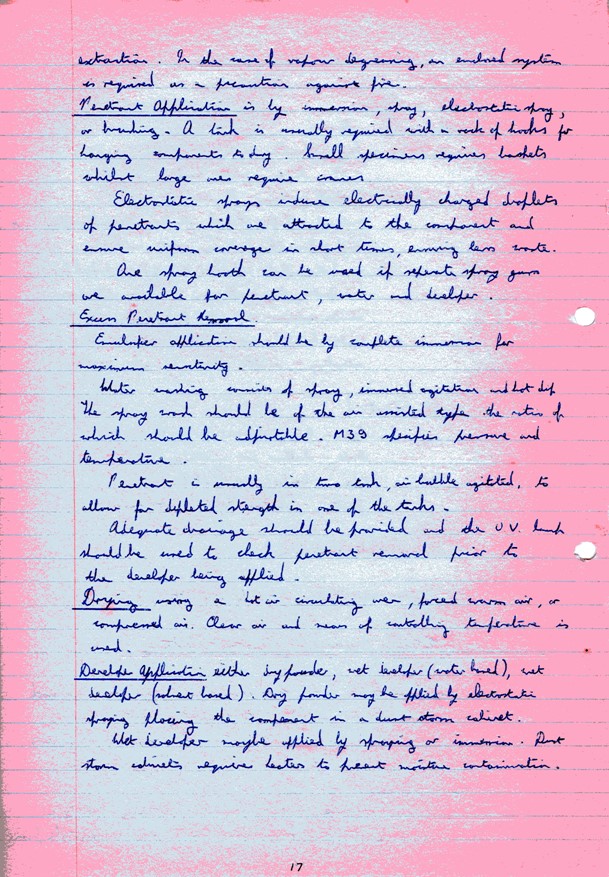 extraction. In the case of vapour degreasing, an enclosed system
is required as a precaution against fire.
Penetrant Application is by immersion, spray, electrostatic spray,
or brushing. A tank is usually required with a rack of hooks for
hanging components to dry. Small specimens requires baskets
whilst large ones require cranes
Electrostatic sprays induce electrically charged droplets
of penetrants which are attracted to the component and
ensure uniform coverage in short times, ensuring less waste.
One spray booth can be used if seperate spray guns
are available for penetrant, water and developer.
Excess Penetrant Removal.
Emulsifier application should be by complete immersion for
maximum sensitivity.
Water washing consists of spray, immersed agitation and hot dip
The spray wash should be of the air assisted type the ratio of
which should be adjustable. M39 specifies pressure and
temperature.
Penetrant is usually in two tank, air bubble agitated, to
allow for depleted strength in one of the tanks.
Adequate drainage should be provided and the U.V. lamp
should be used to check penetrant removal prior to
the developer being applied.
Drying using a hot air circulating oven, forced warm air, or
compressed air. Clean air and means of controlling temperature is
used.
Developer Application either dry powder, wet developer (water based), wet
developer (solvent based). Dry powder may be applied by electrostatic
spraying placing the component in a dust storm cabinet.
Wet developer maybe applied by spraying or immersion. Dust
storm cabinets require heater to prevent moisture contamination.
17